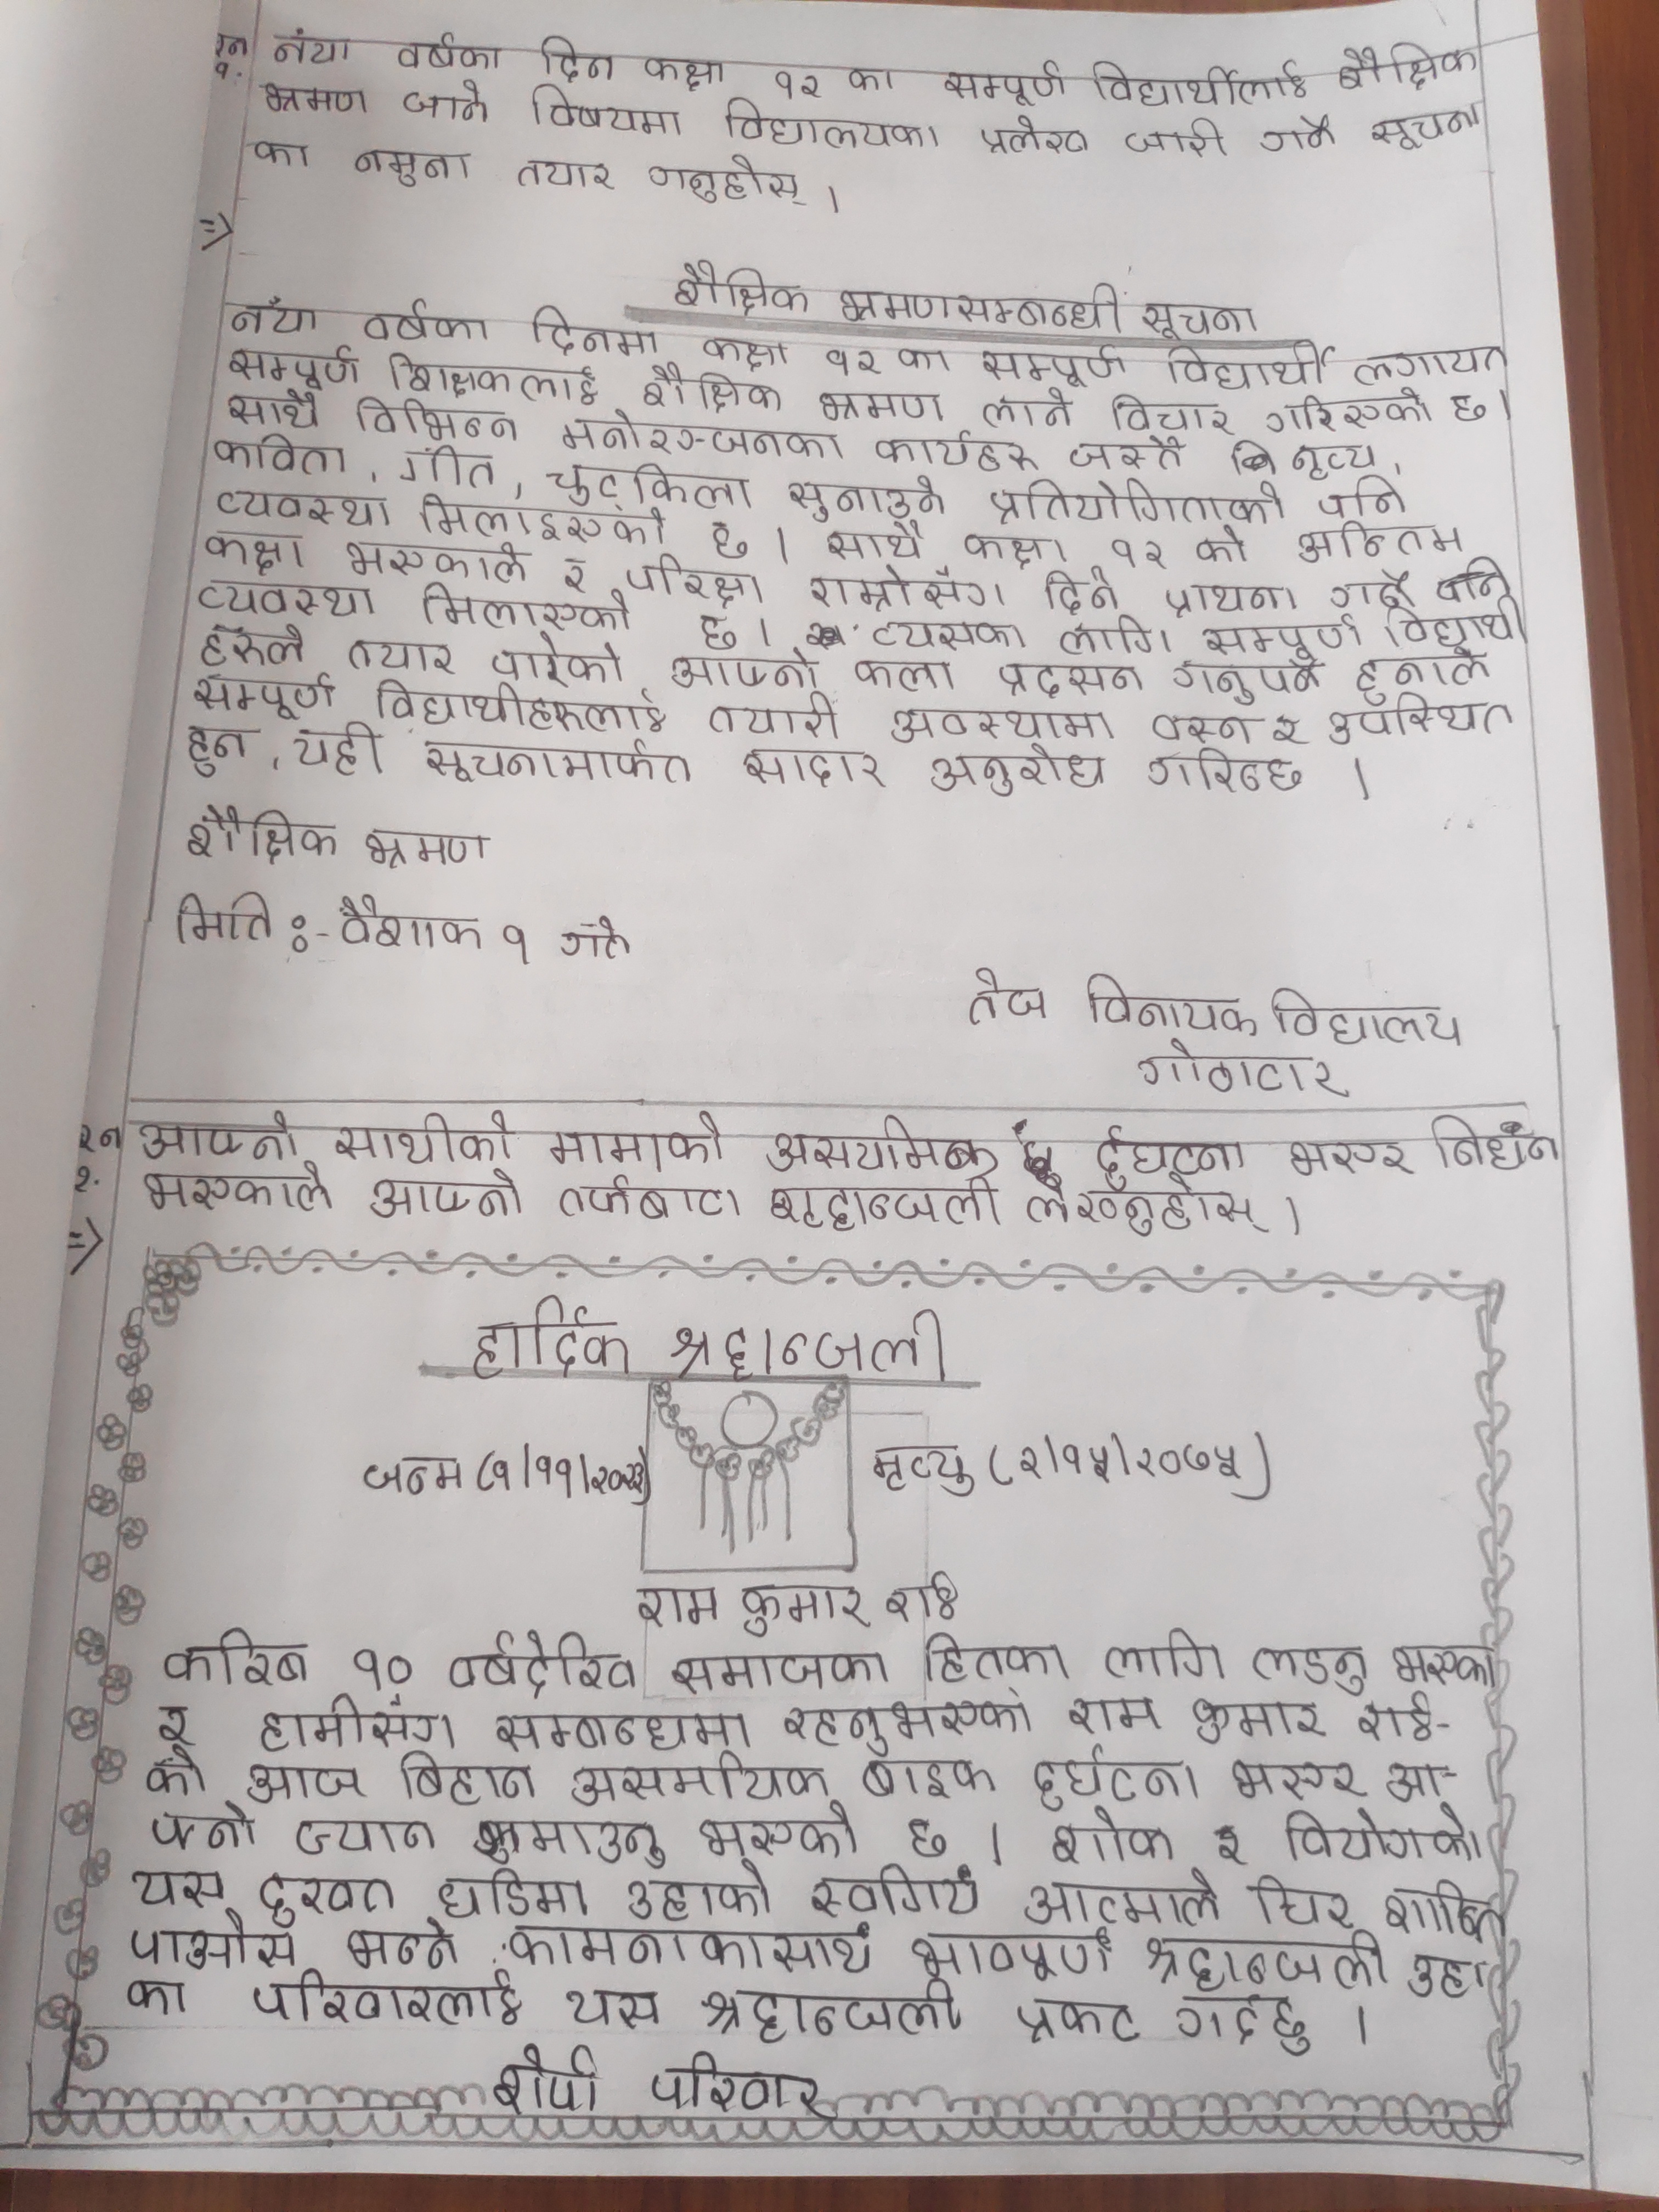 प्रन १. नंया वर्षका दिन कक्षा १२ का सम्पूर्ण विद्यार्थीलाई शैक्षिक
भ्रमण जाने विषयमा विद्यालयका प्रलेख जारी गर्ने सूचना
का नमुना तयार गनुहोस् ।
=>
शैक्षिक भ्रमणसम्बन्धी सूचना
नँया वर्षका दिनमा कक्षा १२ का सम्पूर्ण विद्यार्थी लगायत
सम्पूर्ण शिक्षकलाई शैक्षिक भ्रमण लाने विचार गरिएको छ।
साथै विभिन्न मनोरञ्जनका कार्यहरू जस्तै नृत्य,
कविता, गीत, चुट्किला सुनाउने प्रतियोगिताको पनि
व्यवस्था मिलाइएको छ । साथै कक्षा १२ को अन्तिम
कक्षा भएकाले र परिक्षा राम्रोसँग दिने प्राथना गर्ने पनि
व्यवस्था मिलाएको छ। त्यसका लागि सम्पूर्ण विद्यार्थी
हरुले तयार पारेको आफ्नो कला प्रदसन गनुपर्ने हुनाले
सम्पूर्ण विद्याथीहरूलाई तयारी अवस्थामा वस्न र उपस्थित
हुन, यही सूचनामार्फत सादार अनुरोध गरिन्छ ।
शैक्षिक भ्रमण
मिति :- वैशाक १ गते
तेज विनायक विद्यालय
गोठाटार
२. आफ्नो साथीको मामाको असयामिक दुर्घटना भएर निधन
भएकाले आफ्नो तर्फबाट श्रृद्धान्जली लेख्नुहोस् ।
=>
हार्दिक श्रद्धान्जली
जन्म (१/११/) मृत्यु (२/१५/२०७५)
राम कुमार राई
करिब १० वर्षदेखि समाजका हितका लागि लडनु भएका
र हामीसँग सम्बन्धमा रहनुभएको राम कुमार राई-
को आज बिहान असमयिक बाइक दुर्घटना भएर आ-
फ्नो ज्यान गुमाउनु भएको छ । शोक र वियोगको
यस दुखत घडिमा उहाको स्वगियँ आत्माले चिर शान्ति
पाओस भन्ने कामनाकासाथँ भावपूर्ण श्रद्धान्जली उहा
का परिवारलाई यस श्रद्धान्जली प्रकट गर्दछु ।
शेर्पा परिवार